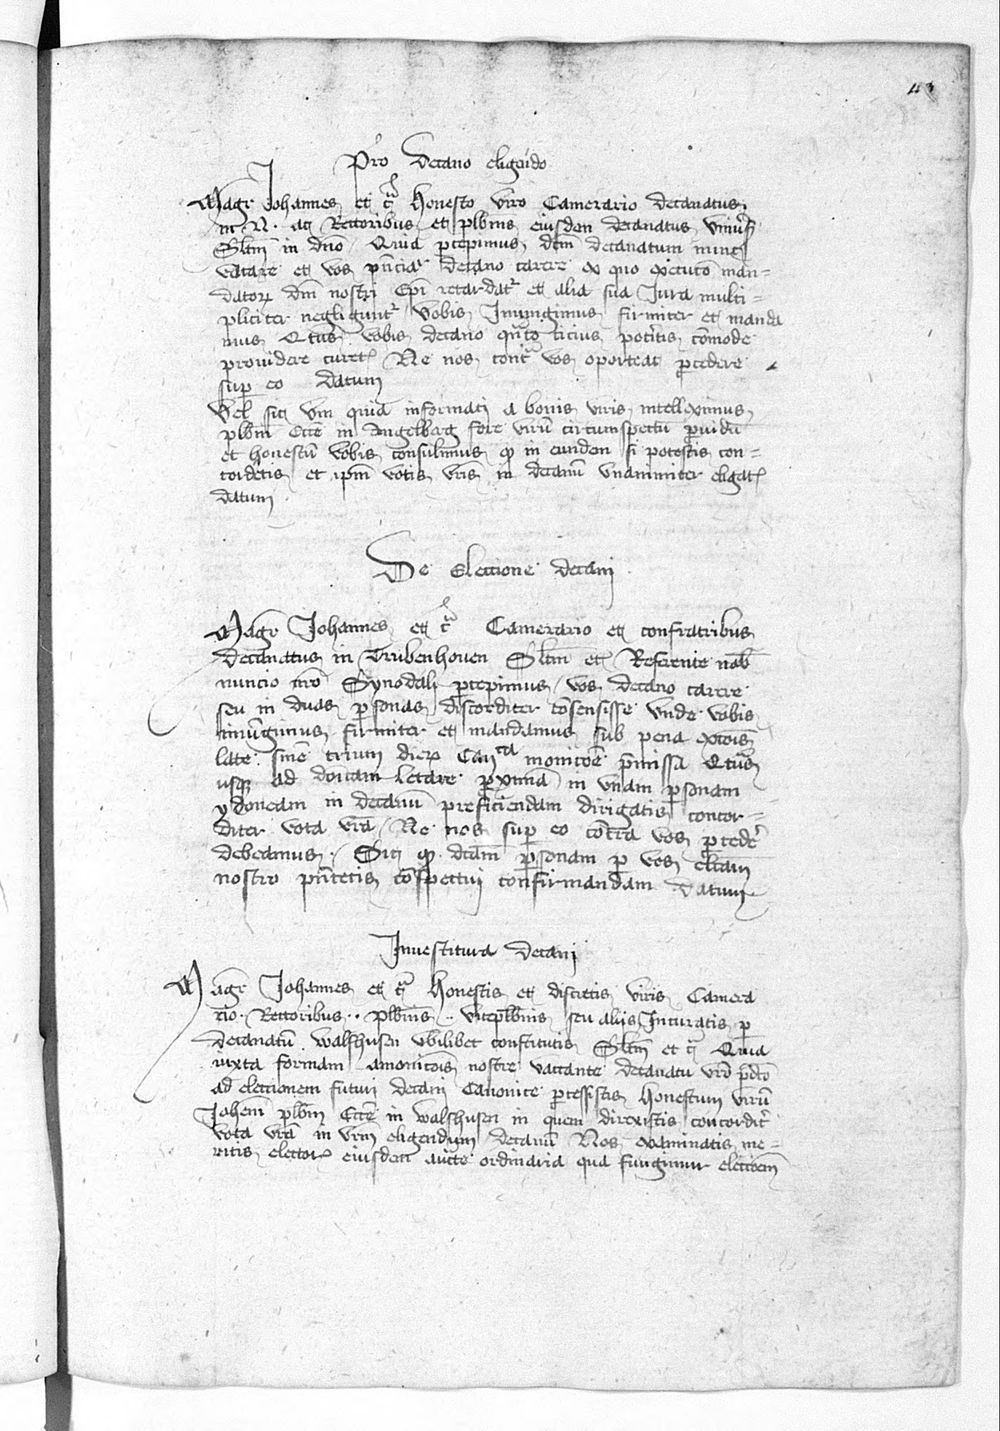 43
Pro Decano eligendo
Magr Johannes et cr Honesto viro Camerario decanatus
in N. ac Rectoribus et plbnis eiusdem decanatus vniuersis
Sltm in dno / Quia pcepimus dcm decanatum nunc
vacare et vos pnciar decano carere ex quo execucio man-
dator dni nostri Epi retardatr et alia sua Jura multi-
pliciter negliguntr vobis Iniungimus firmiter et manda
mus Qtus vobis decano qnto cicius potitis comode
prouidere curetis Ne nos contra vos oporteat pcedere
sup eo datum
Vel sic vm quia informati a bonis viris intelleximus
plbm Eccē in Angelberg fore virū circumspectū puidū
et honestū vobis consulimus qp in eundem si potestis con-
cordetis et ipm votis vris in decanū vnanimiter eligatis
datum

De Eleccione decani
Magr Johannes et cr Camerario et confratribus
decanatus in Trubenhouen Sltm et Referente nob
nuncio nro Synodali pcepimus vos decano carere
seu in duas psonas discorditer cōsensisse vnde vobis
iniūgimus firmiter et mandamus sub pena excois
late sine trium dierū Canca monicōe pmissa Qtus
usqz ad dnicam letare pximā in vnam psonam
ydoneam in decanū preficiendam dirigatis concor-
diter vota vrā / Ne nos sup eo cōtra vos pcedr
debeamus / Sic qp dcam psonam p vos elctam
nostro pntetis cōspectui confirmandam Datum

Inuestitura decani
Magr Johannes et cr Honestis et discretis viris Camera
rio . Rectoribus .. plbnis .. viceplbnis seu alijs Incuratis p
decanatū walshusen vbilibet constitutis Sltm et cr Quia
iuxta formam amonicois nostre vaccante decanatu vro pdco
ad eleccionem futuri decani Canonice pcessistis Honestum virū
Johem plbm Eccē in walshusen in quem direxistis concorditr
vota vra in vrm eligendum decanū Nos examinatis me-
ritis elector eiusdem aucte ordinaria qua fungimur elecoem